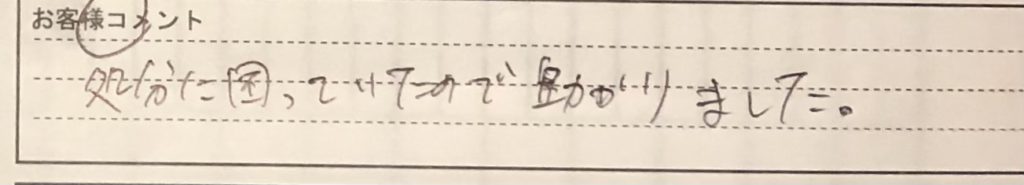 お客様コメント
処分に困っていたので助かりました。